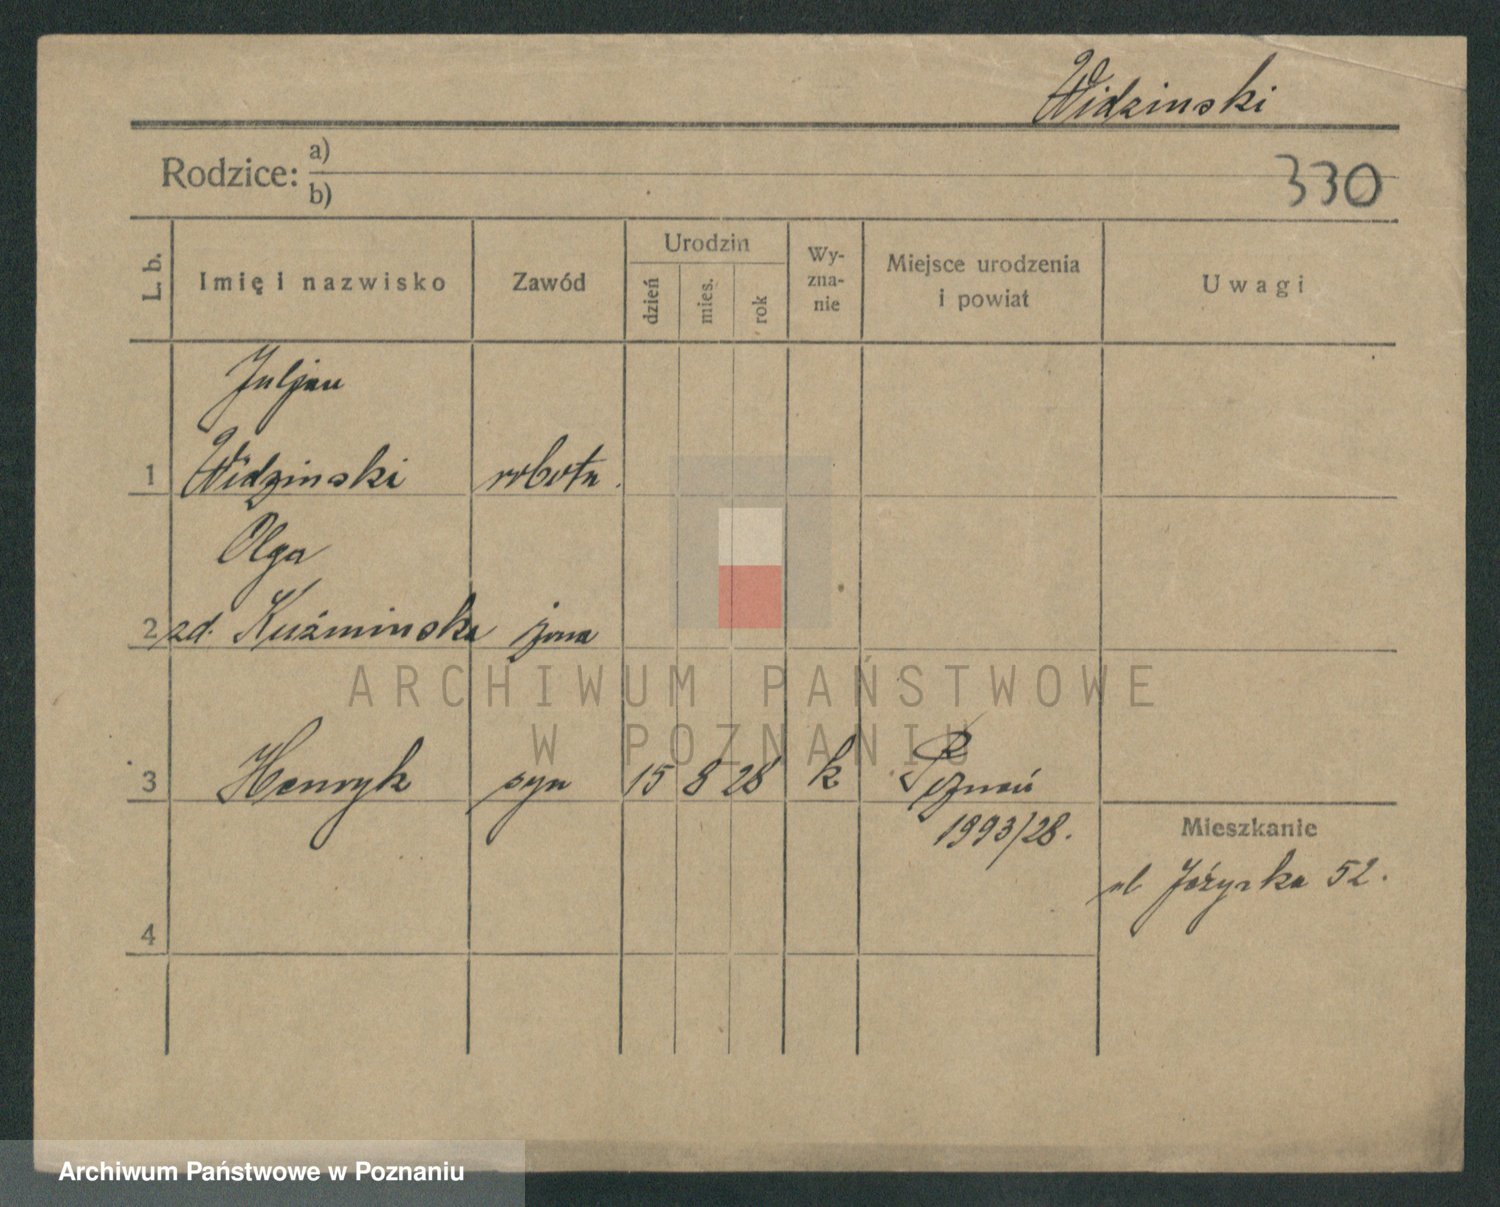 Widzinski
Rodzice: a)
b)
330
L. b.
Imię i nazwisko
Zawód
Urodzin
dzień
mies.
rok
Wy-
zna-
nie
Miejsce urodzenia
i powiat
Uwagi
Juljan
1 Widzinski robotn.
Olga
2 zd. Kuźminska żona
3 Henryk syn 15 8 28 k Poznań
1993/28.
Mieszkanie
ul 52.
4
ARCHIWUM PAŃSTWOWE
W POZNANIU
Archiwum Państwowe w Poznaniu